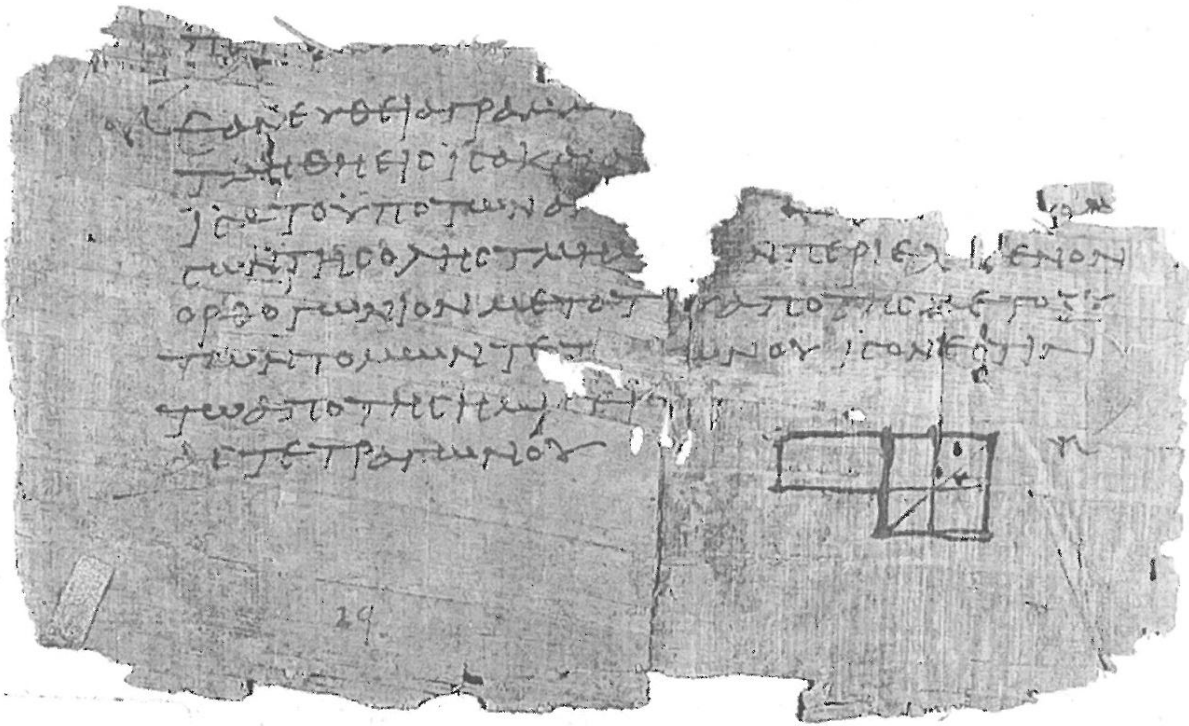 ΕΑΝΕΥΘΕΙΑΓΡΑΜΜ
ΤΜΗΘΗΕΙϹΙϹΑΚΑΙΑΝ
ΙϹΑΤΟΥΠΟΤΩΝΑΝ
ϹΩΝΤΗϹΟΛΗϹΤΜΗΜ ΝΠΕΡΙΕΧ ΕΝΟΝ
ΟΡΘΟΓΩΝΙΟΝΜΕΤΑΤ ΑΠΟΤΗϹΜΕΤΟΞΥ
ΤΩΝΤΟΜΩΝΤΕΤ ΩΝΟΥΙϹΟΝΕϹΤΙΝ
ΤΩΑΠΟΤΗϹΗΜΙ
ΑϹΤΕΤΡΑΓΩΝΟΥ
29.